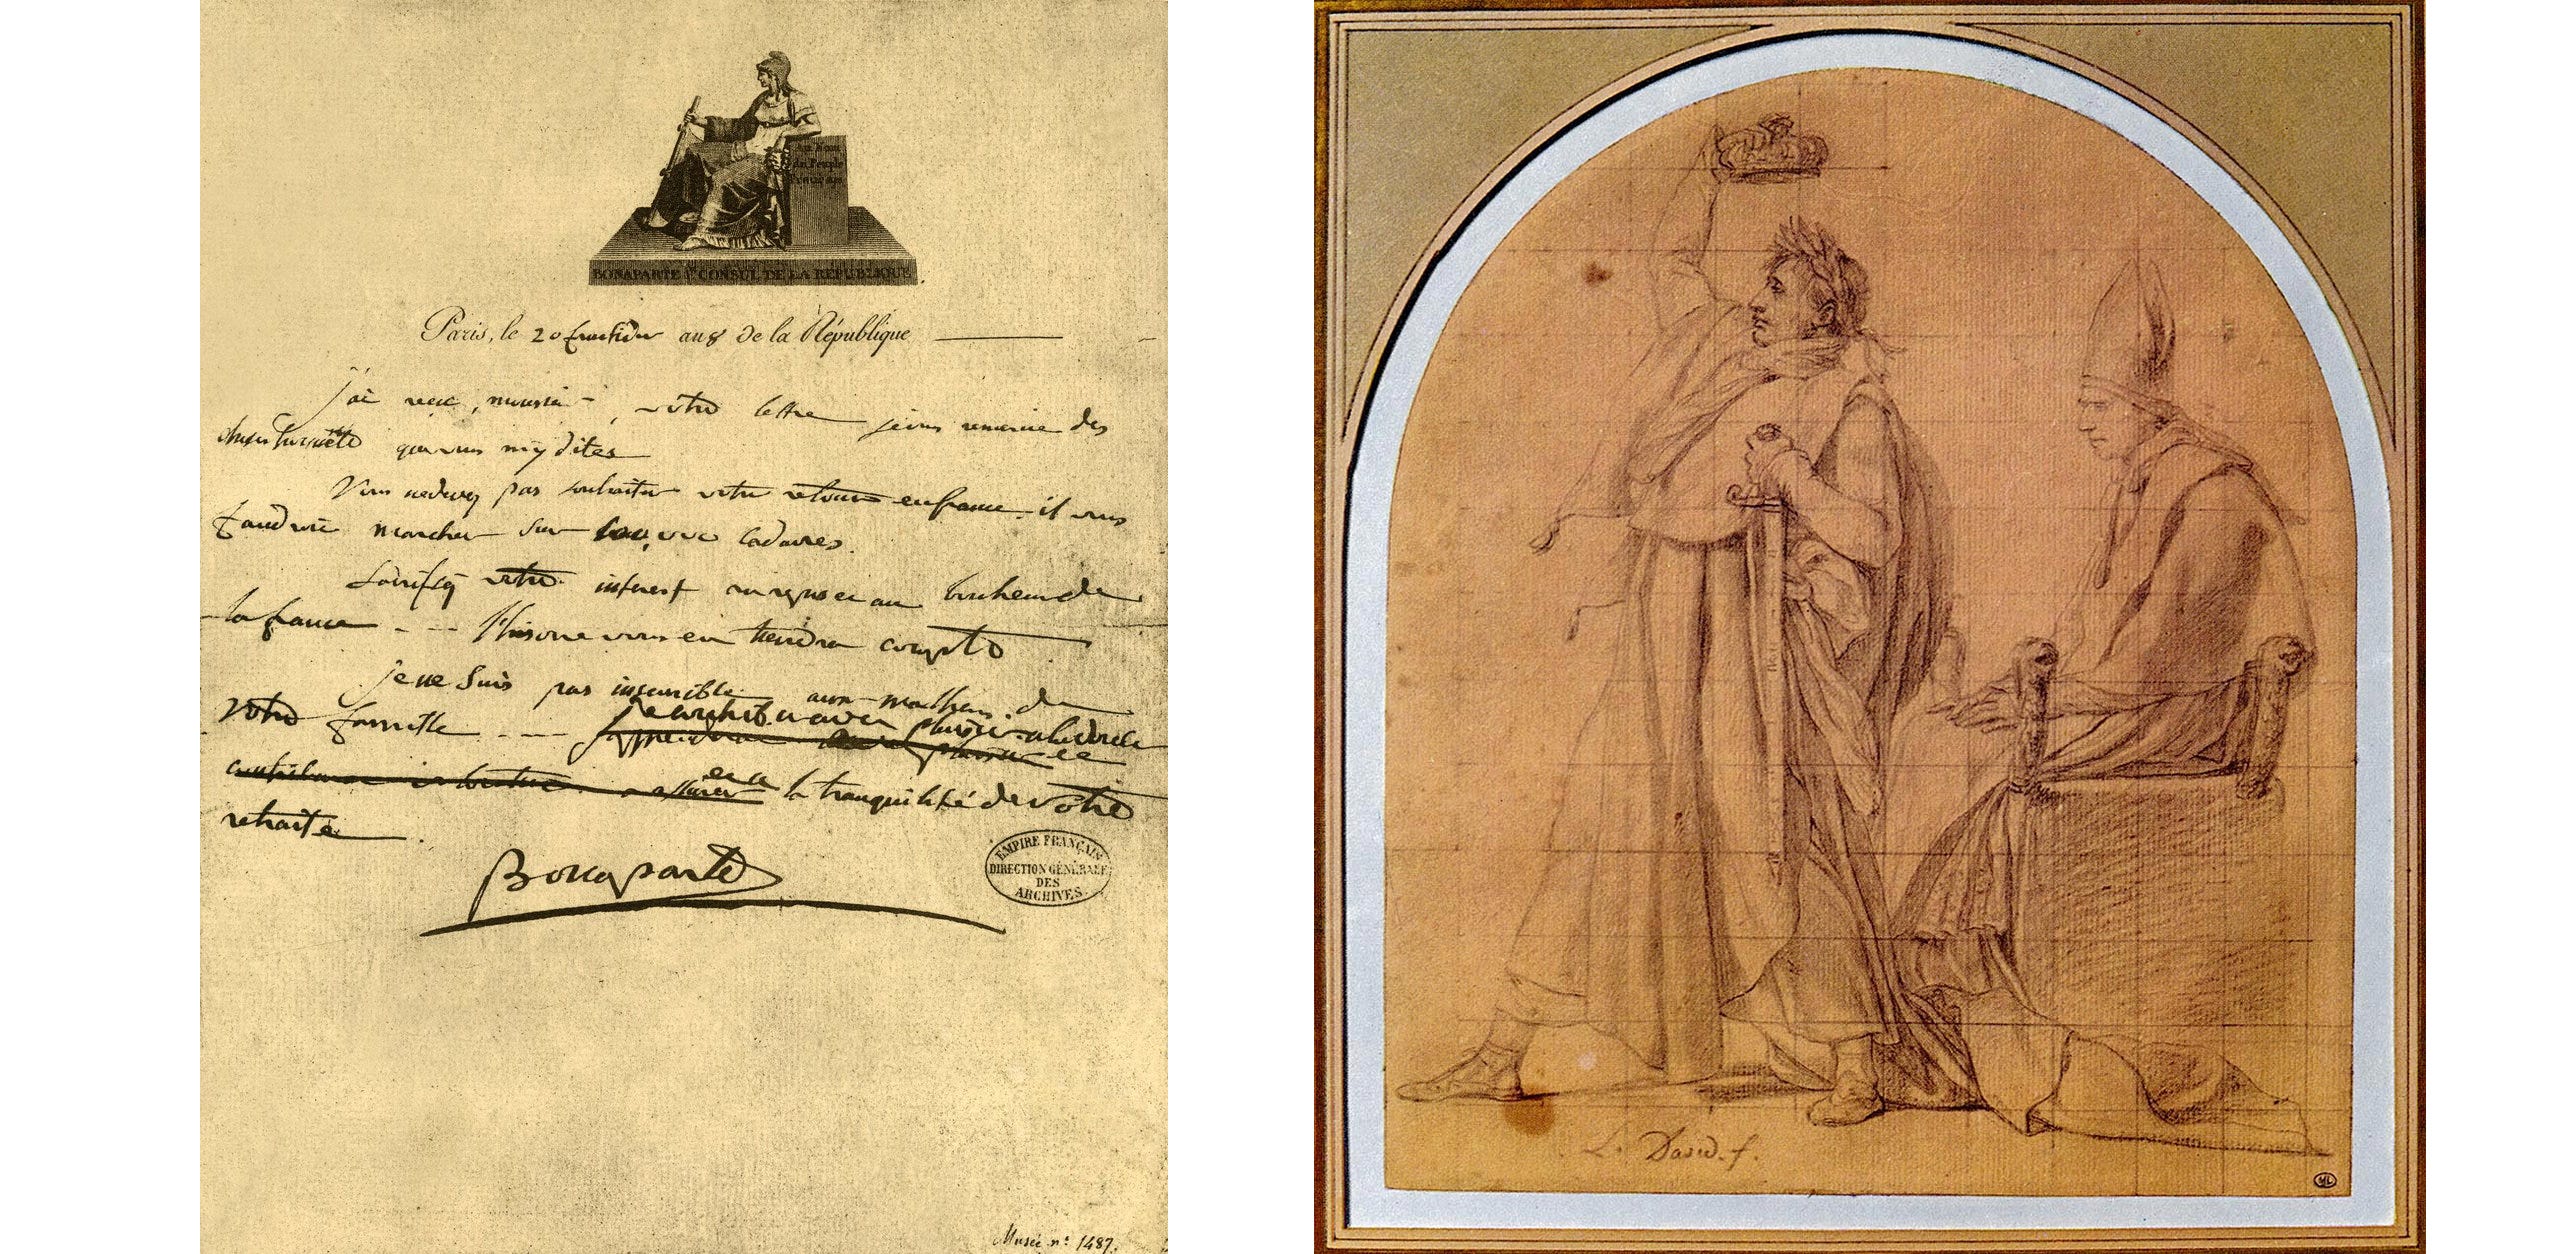 Au Nom
du Peuple
Français
BONAPARTE 1er CONSUL DE LA REPUBLIQUE.
Paris, le 20 fructidor an 8 de la République
j'ai reçu, monsieur, votre lettre je vous remercie des
choses honnête que vous my dites
Vous nedevez pas souhaiter votre retour enfrance. il vous
faudroit marcher sur 100,000 cadavres.
Sacrifiez votre interest au repos et au bonheur de
la france - - - l'histoire vous en tiendra compte
je ne suis pas insensible aux malheurs de
votre famille - - - je contribuerai avec plaisir
et a
assurer la tranquilité de votre
retraite.
Bonaparte
EMPIRE FRANÇAIS
DIRECTION GÉNÉRALE
DES
ARCHIVES
Musée n.° 1487.
L. David. f.
ML